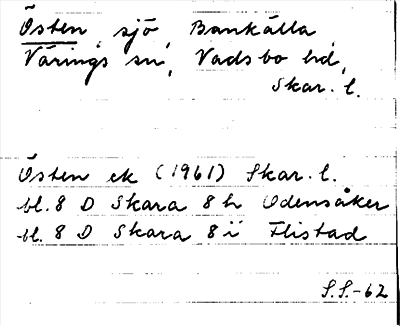 Östen, sjö, Bankälla,
Värings sn, Vadsbo hd,
Skar. l.
Östen ek (1961) Skar. l.
bl. 8 D Skara 8 h Odensåker
bl. 8 D Skara 8 i Flistad
S.S.-62